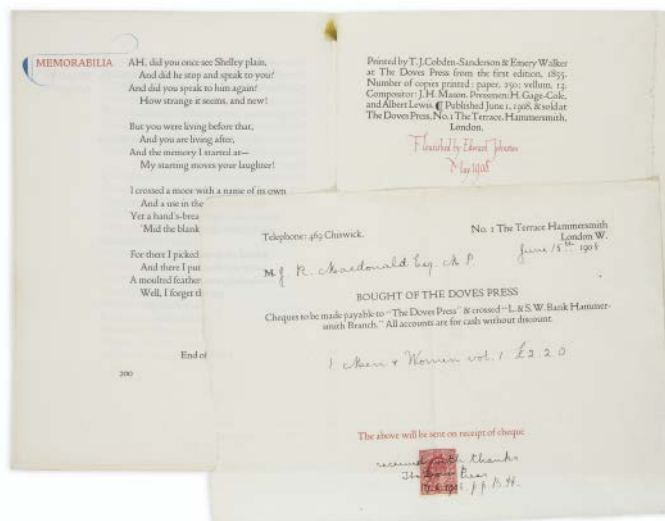 MEMORABILIA
AH, did you once see Shelley plain,
And did he stop and speak to you?
And did you speak to him again?
How strange it seems, and new!
But you were living before that,
And you are living after,
And the memory I started at—
My starting moves your laughter!
I crossed a moor with a name of its own
And a use in the
Yet a hand's-brea
'Mid the blank
For there I picked
And there I put
A moulted feather
Well, I forget th
End of
200
Printed by T. J. Cobden-Sanderson & Emery Walker
at The Doves Press from the first edition, 1855.
Number of copies printed: paper, 250; vellum, 12.
Compositor: J. H. Mason. Pressmen: H. Gage-Cole,
and Albert Lewis. ¶ Published June 1, 1908, & sold at
The Doves Press, No. 1 The Terrace, Hammersmith,
London.
Flourished by Edward Johnston
May 1908
Telephone: 469 Chiswick.
No. 1 The Terrace Hammersmith
London W.
June 15th 1908
M. J. R. Macdonald Esq. M P
BOUGHT OF THE DOVES PRESS
Cheques to be made payable to "The Doves Press" & crossed "L. & S. W. Bank Hammer-
smith Branch." All accounts are for cash without discount.
1 Men & Women vol. 1 £2.2.0
The above will be sent on receipt of cheque
received with thanks
The Doves Press
1908 p.p.